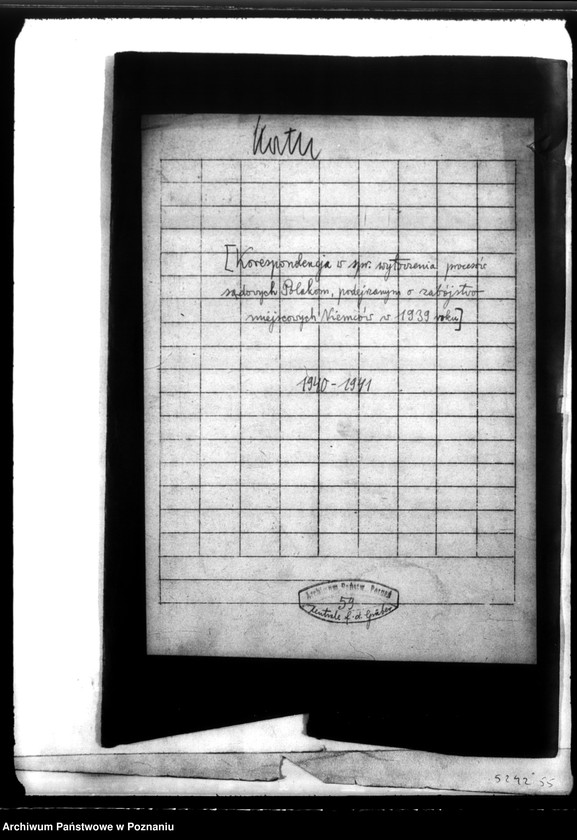 [Korespondencja w spr. wytoczenia procesów
sądowych Polakom, podejrzanym o zabójstwo
miejscowych Niemców w 1939 roku]
1940-1941
Archiwum Państw. Poznań
59
Zentrale f. d. Gräber
5292 55
Archiwum Państwowe w Poznaniu